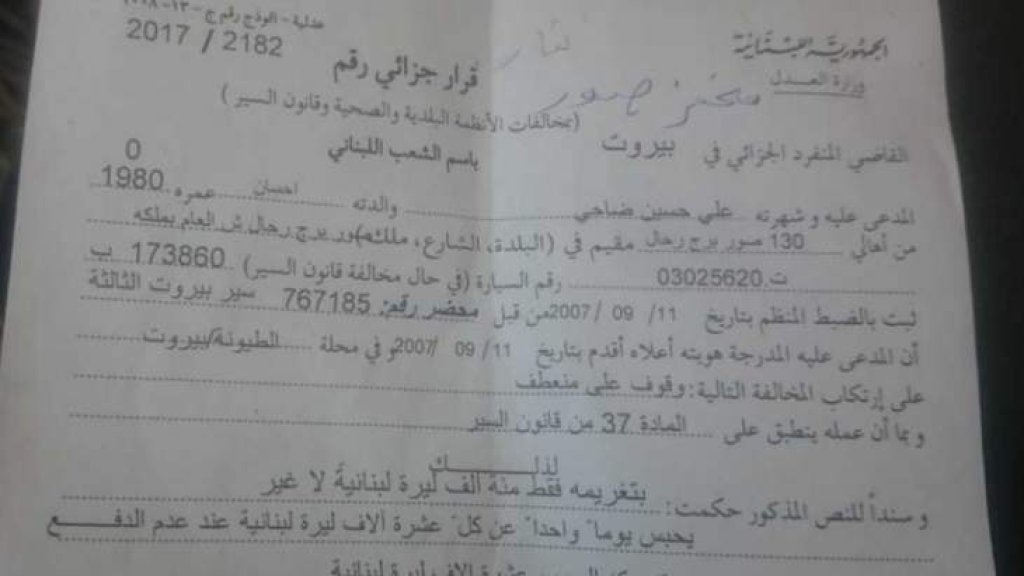 عدلية - نموذج رقم ج - ١٣ -
الجمهورية اللبنانية
وزارة العدل
قرار جزائي رقم 2182 / 2017
مخفر صور
(بمخالفات الأنظمة البلدية والصحية وقانون السير)
القاضي المنفرد الجزائي في بيروت
باسم الشعب اللبناني
0
المدعى عليه وشهرته علي حسين ضاحي والدته احسان عمره 1980
من أهالي 130 صور برج رحال مقيم في (البلدة، الشارع، ملك) صور برج رحال ش العام بملكه
ت.03025620 رقم السيارة (في حال مخالفة قانون السير) 173860 ب
ثبت بالضبط المنظم بتاريخ 11/ 09 /2007 من قبل محضر رقم: 767185 سير بيروت الثالثة
أن المدعى عليه المدرجة هويته أعلاه أقدم بتاريخ 11/ 09 /2007 و في محلة الطيونة/بيروت
على إرتكاب المخالفة التالية: وقوف على منعطف
وبما أن عمله ينطبق على المادة 37 من قانون السير
لذلك
وسنداً للنص المذكور حكمت: بتغريمه فقط مئة الف ليرة لبنانية لا غير
يحبس يوما" واحدا" عن كل عشرة آلاف ليرة لبنانية عند عدم الدفع
عشرة آلاف ليرة لبنانية